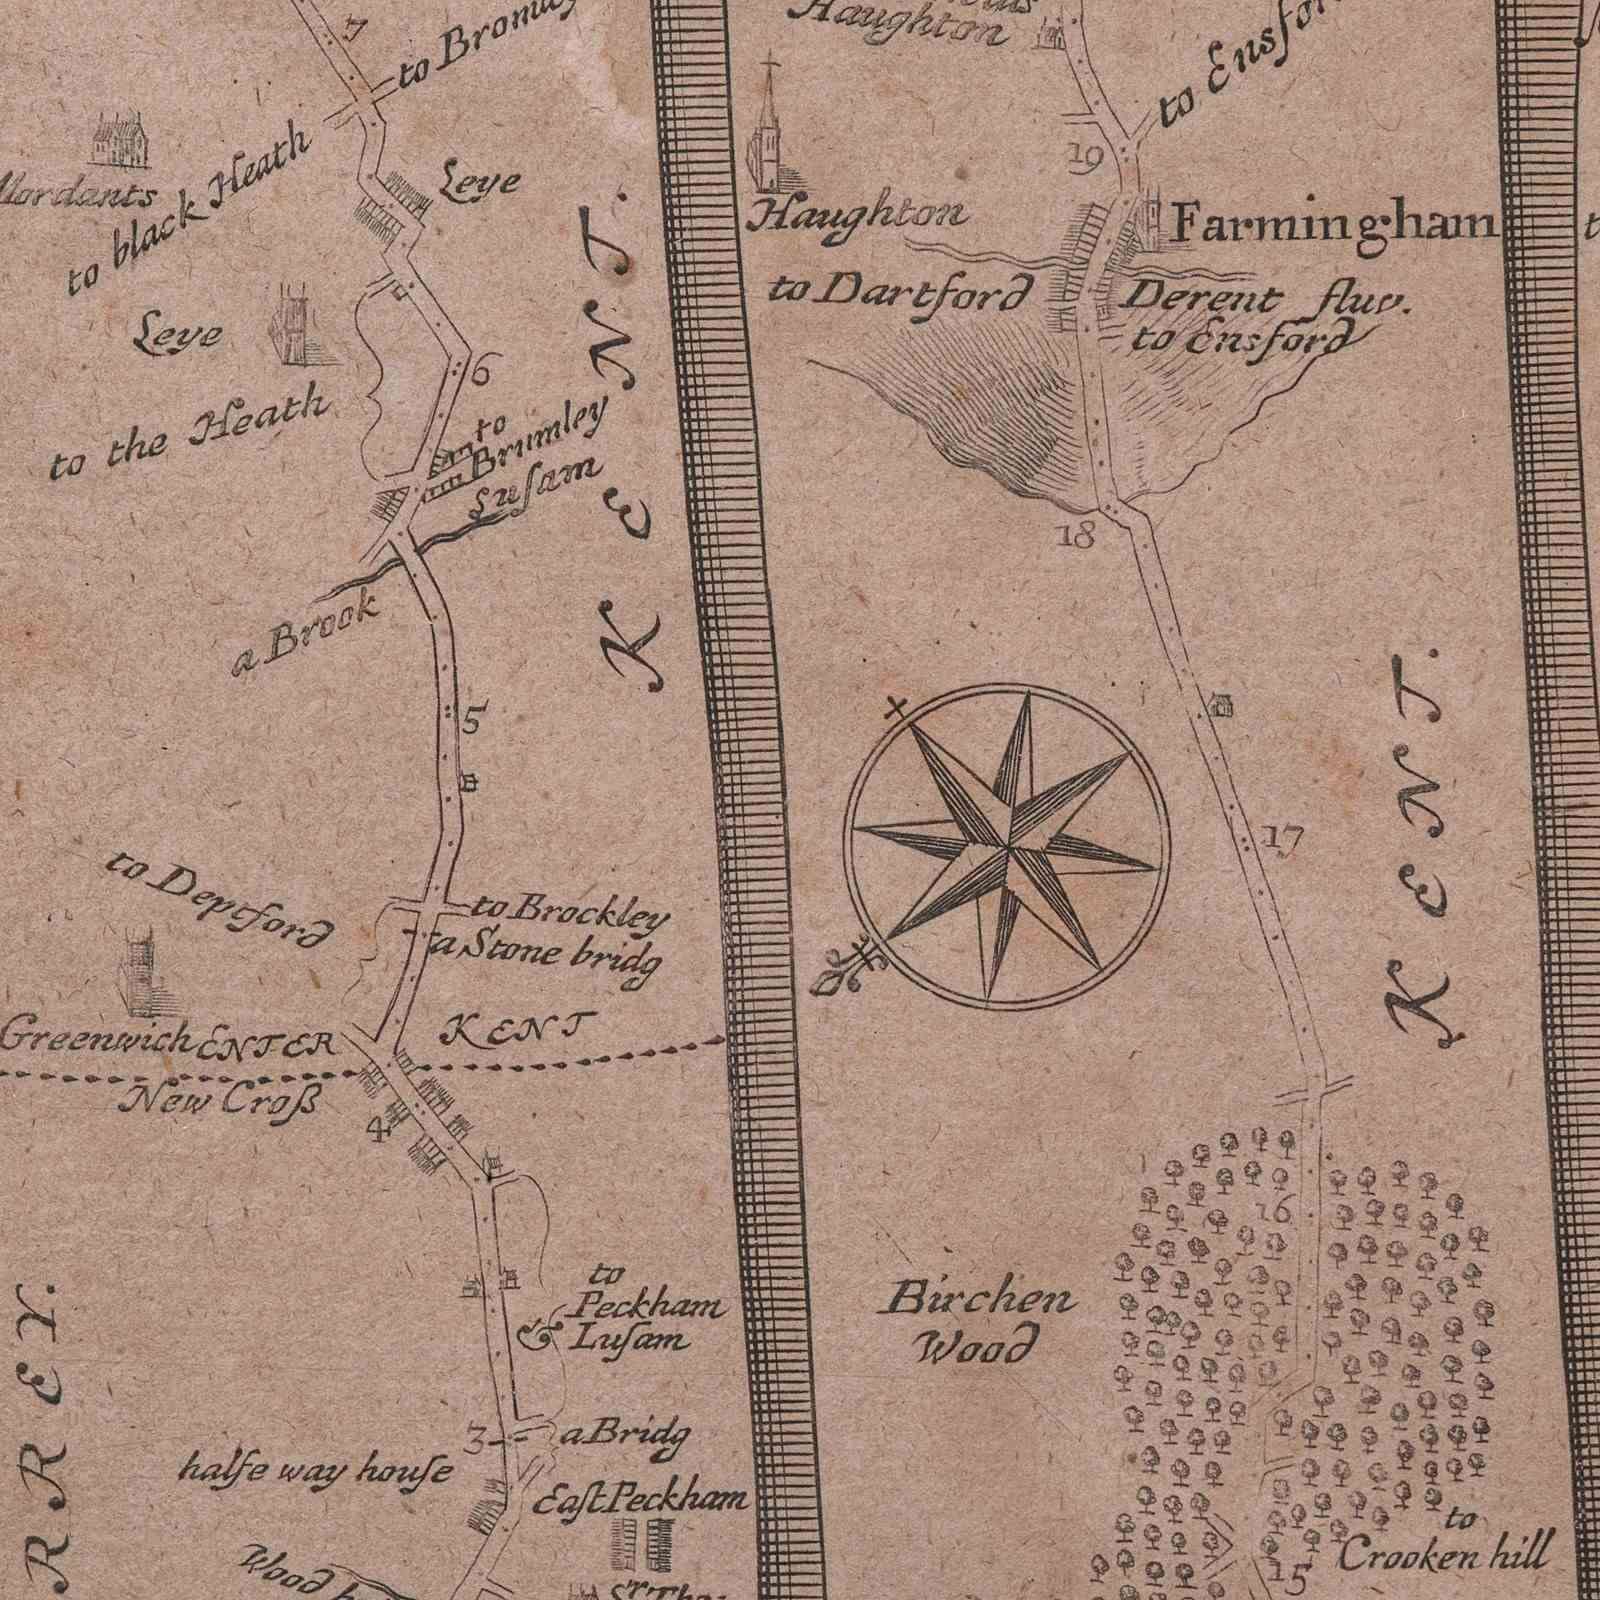 7
to
black Heath
Leye
Leye
to the Heath
6
to
Brumley
Lusam
a Brook
KENT.
5
to Deptford
to Brockley
a Stone bridg
Greenwich ENTER KENT
New Croß
4
to
Peckham
& Lusam
3
a Bridg
halfe way house
East Peckham
Wood
RREY.
Haughton
to
19
Haughton
Farmingham
to Dartford
Derent fluv.
to Ensford
18
17
KENT.
16
Birchen
Wood
to
Crooken hill
15